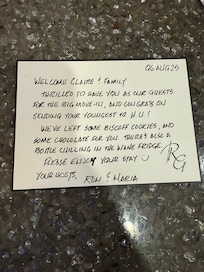 06 AUG 25
WELCOME CLAIRE & FAMILY
THRILLED TO HAVE YOU AS OUR GUESTS
FOR THE BIG MOVE-IN, AND CONGRATS ON
SENDING YOUR YOUNGEST TO H.U.!
WE'VE LEFT SOME BISCOFF COOKIES, AND
SOME CHOCOLATE FOR YOU. THERE'S ALSO A
BOTTLE CHILLING IN THE WINE FRIDGE.
PLEASE ENJOY YOUR STAY
YOUR HOSTS, RON & MARIA
RG